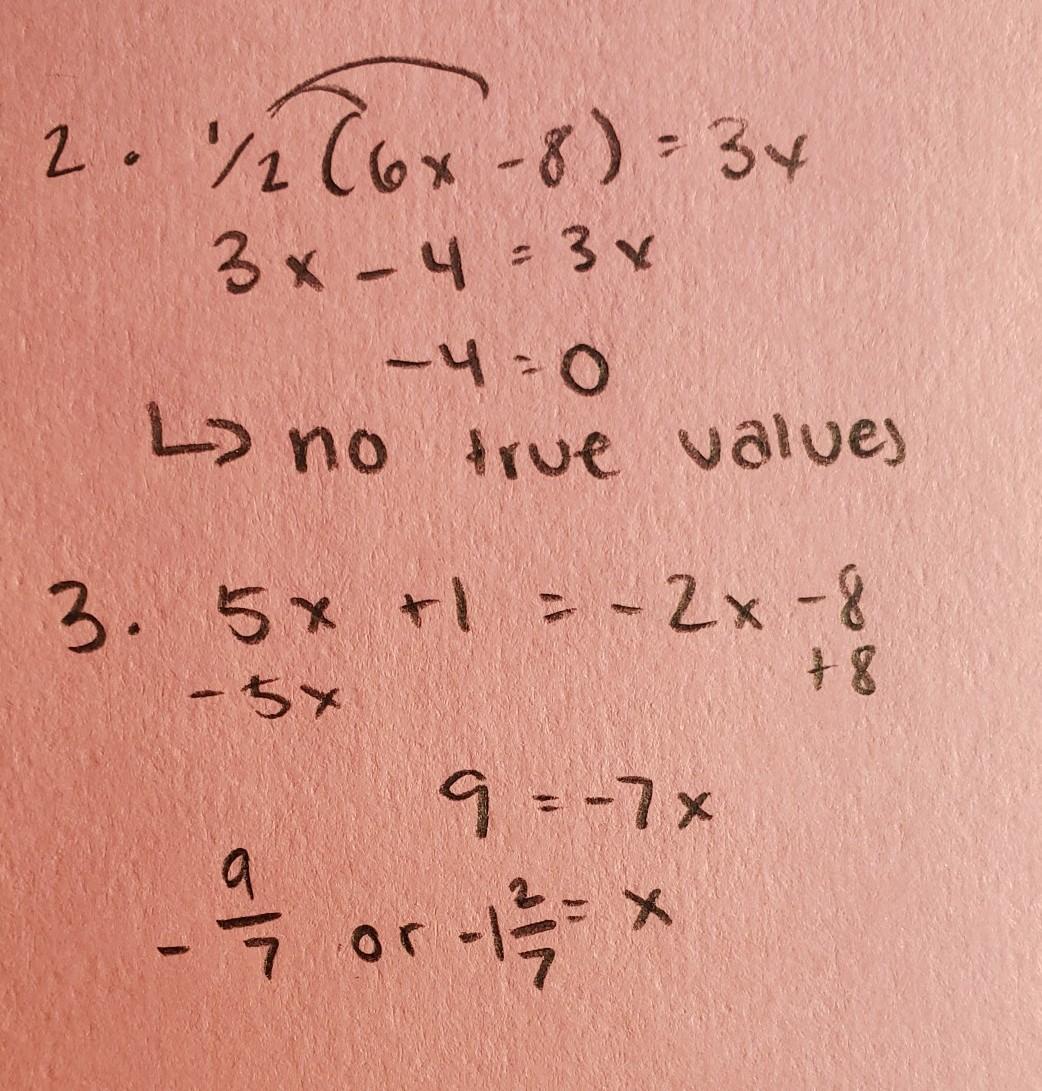 2. 1/2 (6x - 8) = 3x
3x - 4 = 3x
-4 = 0
↳ no true values
3. 5x + 1 = -2x - 8
-5x +8
9 = -7x
- 9/7 or -1 2/7 = x